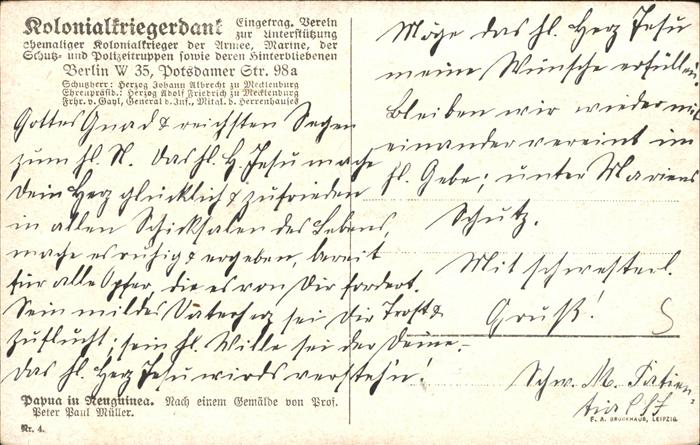 Kolonialkriegerdank Eingetrag. Verein
zur Unterstützung
ehemaliger Kolonialkrieger der Armee, Marine, der
Schutz- und Polizeitruppen sowie deren Hinterbliebenen
Berlin W 35, Potsdamer Str. 98a
Schutzherr: Herzog Johann Albrecht zu Mecklenburg
Ehrenpräsid.: Herzog Adolf Friedrich zu Mecklenburg
Frhr. v. Gayl, General d. Inf., Mitgl. d. Herrenhauses
Gottes Gnad & reichsten Segen
zum hl. N. Das hl. H. Jesu mache
Dein Herz glücklich & zufrieden
in allen Schicksalen des Lebens,
mache es ruhig & ergeben, bereit
für alle Opfer, die es von Dir fordert.
Sein mildes Vaterherz sei Dir Trost &
Zuflucht; sein hl. Wille sei der Deine.-
Das hl. Herz Jesu wird's versteh'n!
Papua in Neuguinea. Nach einem Gemälde von Prof.
Peter Paul Müller.
Nr. 4.
Möge das hl. Herz Jesu
meine Wünsche erfüllen
Bleiben wir wieder mit
einander vereint im
hl. Gebe; unter Mariens
Schutz.
Mit schwesterl.
Gruß!
Schw. M. Tatien-
F. A. BROCKHAUS, LEIPZIG